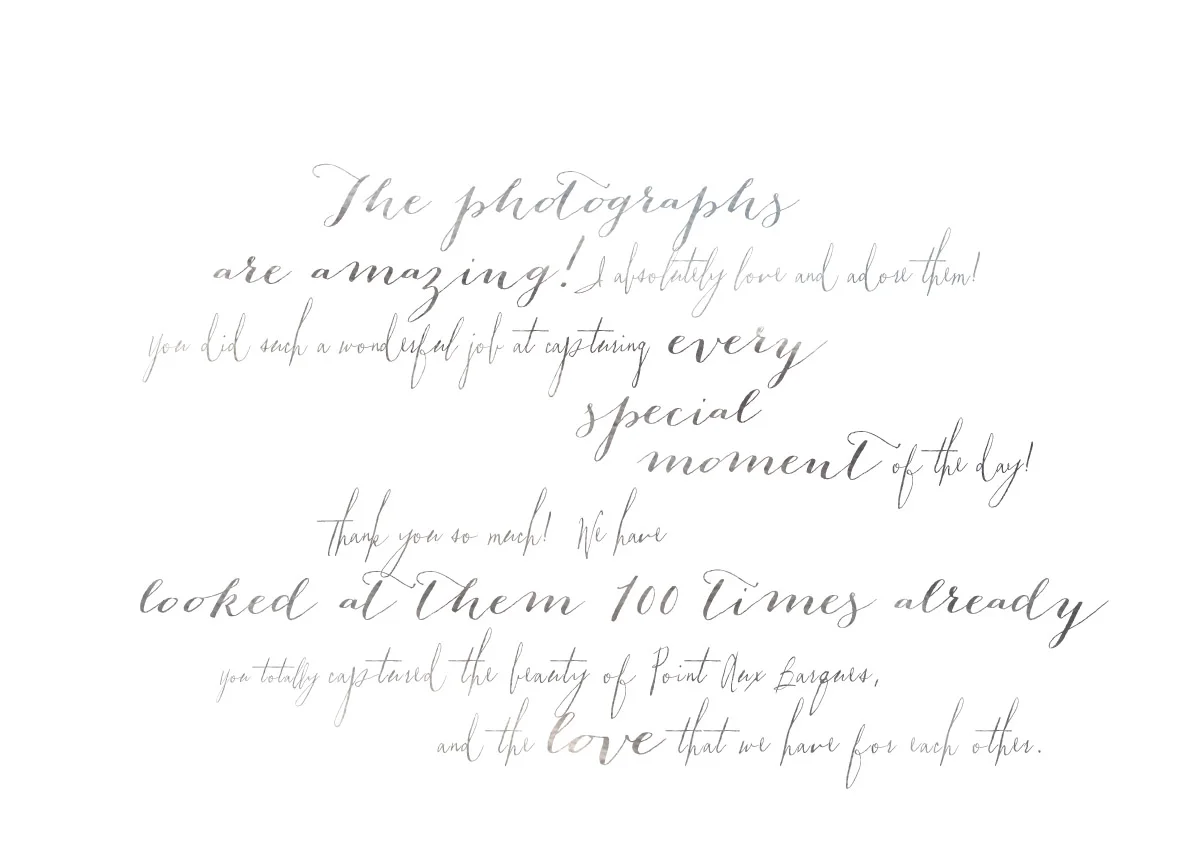 The photographs
are amazing! I absolutely love and adore them!
you did such a wonderful job at capturing every
special
moment of the day!
Thank you so much! We have
looked at them 100 times already
you totally captured the beauty of Point Aux Barques,
and the love that we have for each other.